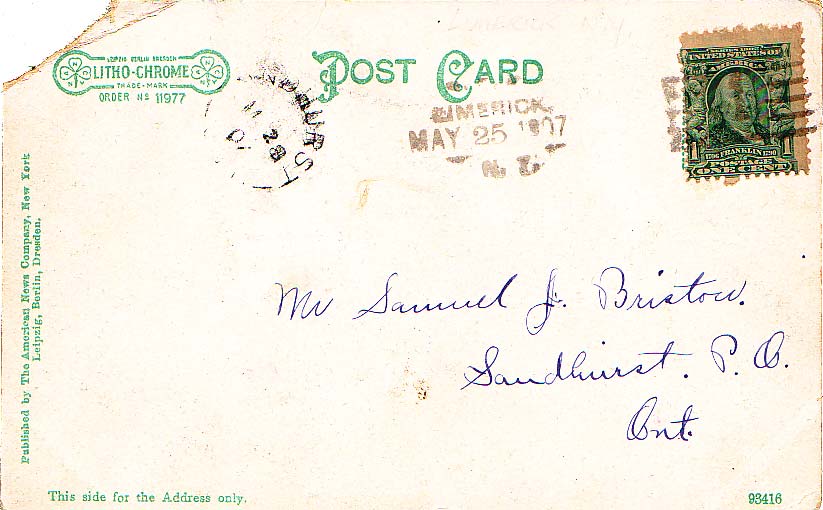 LEIPZIG BERLIN DRESDEN
LITHO-CHROME
TRADE-MARK
ORDER No 11977
POST CARD
NDHURST
28
LIMERICK
MAY 25 1907
N. Y.
UNITED STATES OF
AMERICA
1 1706 FRANKLIN 1790 1
POSTAGE
ONE CENT
Mr Samuel J. Bristow.
Sandhurst. P. O.
Ont.
Published by The American News Company, New York
Leipzig, Berlin, Dresden.
This side for the Address only.
93416